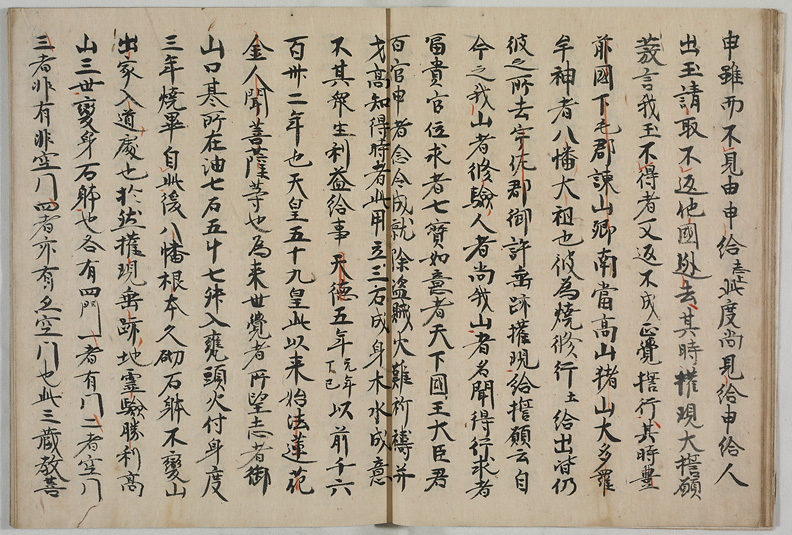 申雖而不見由申給志此度尚見給申給人
出玉請取不返他國逃去其時權現大誓願
發言我玉不得者又返不成正覺誓行其時豊
前國下毛郡諫山卿南當高山猪山大多羅
牟神者八幡大祖也彼為燒修行土給出皆仍
彼之所去宇佐郡御許垂跡權現給誓願云自
今之我山者修驗人者尚我山者名聞得行求者
冨貴官位求者七寳如意者天下國王大臣君
百官申者念令成就除盗賊火難祈禱并
戈高知得時者此用立三石成身木水成意
不其衆生利益給事天德五年元年丁巳以前千六
百卅二年也天皇五十九皇此以来始法蓮花
金人聞菩薩等也為来世覺者所望志者御
山口基所在油七石五斗七舛入甕頭火付身度
三年燒畢自此後八幡根本久砌石躰不變山
出家入道處也於然權現垂跡地霊驗勝利高
山三世變身石躰也各有四門一者有門二者空門
三者非有非空門四者亦有亦空門也此三藏教菩